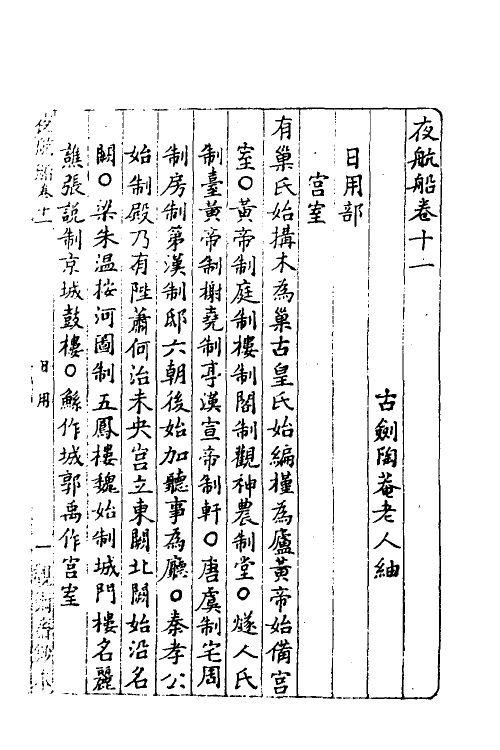 夜航船卷十一
古劍陶菴老人紬
日用部
宮室
有巢氏始搆木為巢古皇氏始編槿為廬黃帝始備宮
室○黃帝制庭制樓制閣制觀神農制堂○燧人氏
制臺黃帝制榭堯制亭漢宣帝制軒○唐虞制宅周
制房制第漢制邸六朝後始加聽事為廳○秦孝公
始制殿乃有陛蕭何治未央宮立東闕北闕始沿名
闕○梁朱温按河圖制五鳳樓魏始制城門樓名麗
譙張說制京城鼓樓○鯀作城郭禹作宮室
夜航船卷十一
日用
一